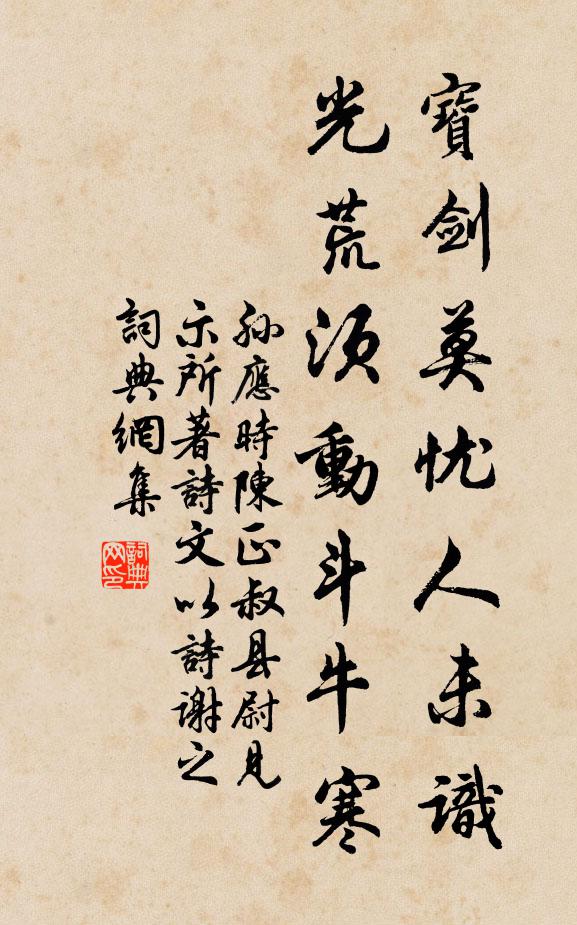 寶劍莫忧人未識
光荒須動斗牛寒
孫應時陳正叔县尉見
示所著詩文以詩谢之
詞典網集
詞典网印